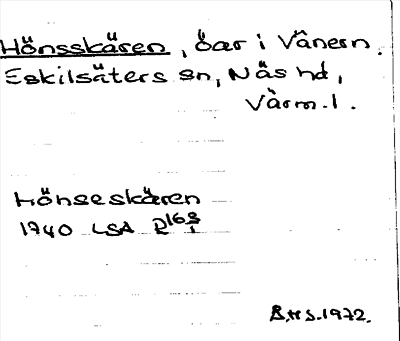 Hönsskären, öar i Vänern.
Eskilsäters sn, Näs hd,
Värm. l.
Hönseskären
1740 LSA
S.H.S. 1972.